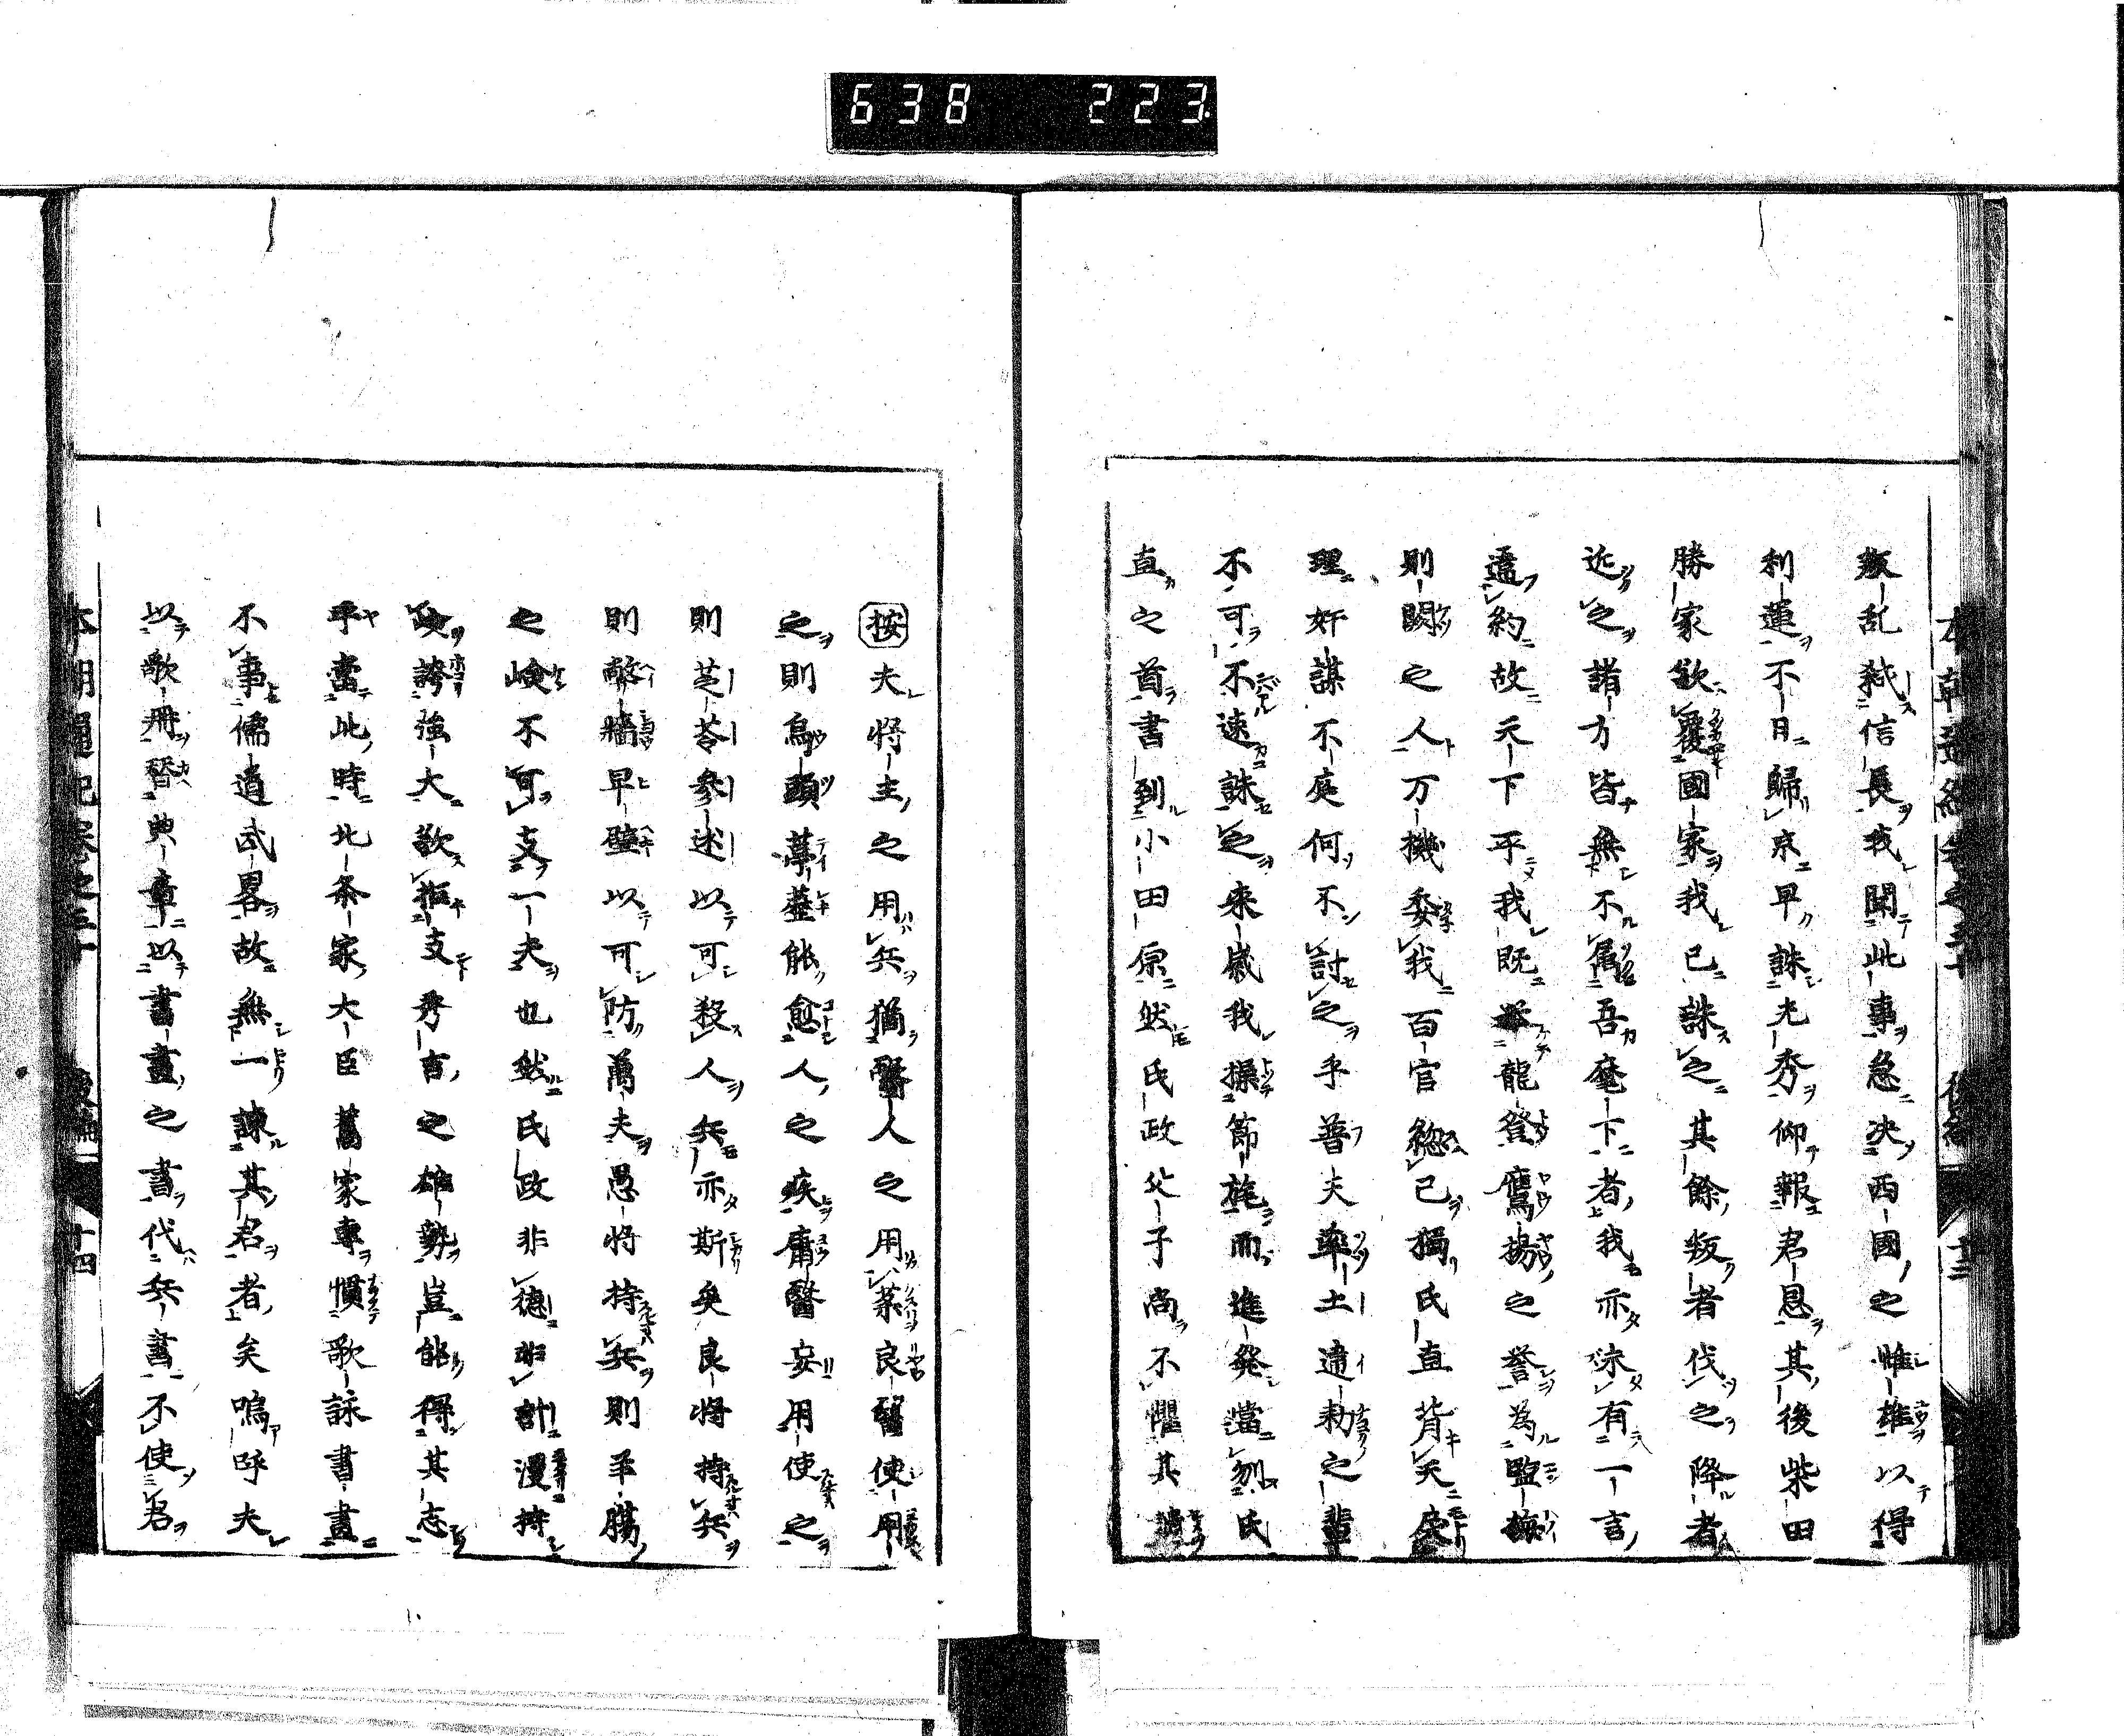 638 223
叛乱弑信長我聞此事急决西國之雌雄以得
利運不日歸京早誅光秀仰報君恩其後柴田
勝家欲覆國家我已誅之其餘叛者伐之降者
近之諸方皆無不属吾麾下者我亦未有一言
違約故天下平我既举龍登鷹揚之誉為塩梅
則闕之人万機委我百官緫己獨氏直背天
理奸謀不庭何不討之乎普天率土違勅之輩
不可不速誅之来歳我操節旄而進発當刎氏
直之首書到小田原然氏政父子尚不懼其
按夫将主之用兵猶醫人之用薬良醫使用
之則烏頭葶藶能愈人之疾庸醫妄用使之
則芝苓参朮以可殺人兵亦斯矣良将持兵
則敝牆早壁以可防萬夫愚将持兵則羊膓
之嶮不可支一夫也然氏政非德非計漫恃
嶮誇強大欲拒支秀吉之雄勢豈能得其志
乎當此時北条家大臣舊家専慣歌詠書畫
不事儒道武畧故無一諫其君者矣嗚呼夫
以歌冊替典章以書畫之書代兵書不使君
本朝通紀巻之五十 十四